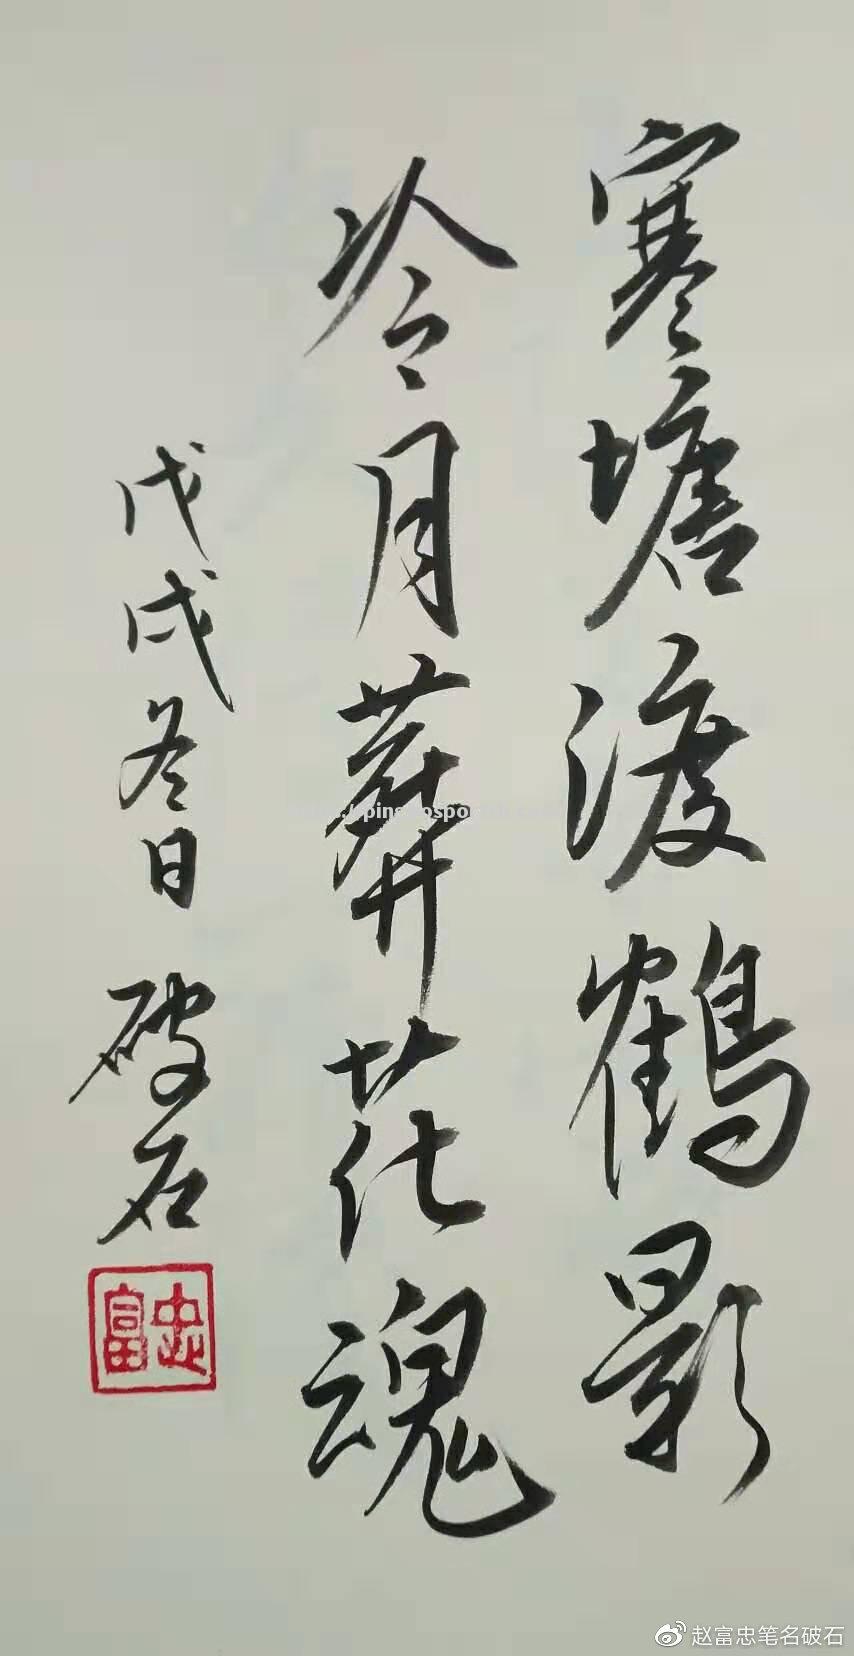 寒塘渡鹤影
冷月葬花魂
戊戌冬日 破石
富忠
赵富忠笔名破石